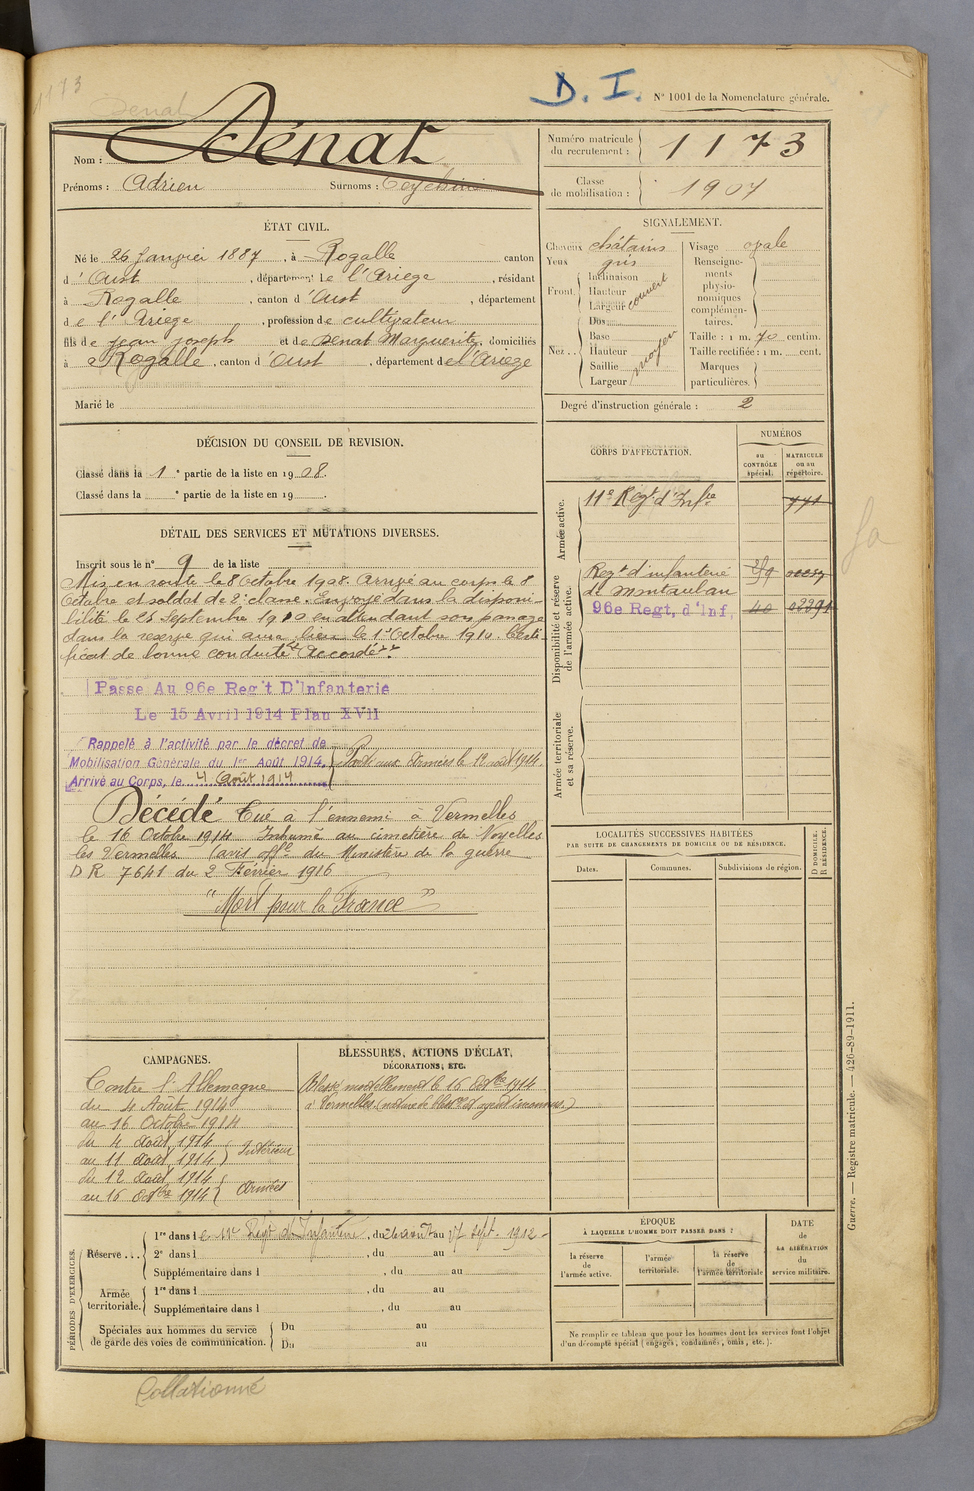 1173
Denat
D. I.
N° 1001 de la Nomenclature générale.
Nom : Dénat
Prénoms : Adrien Surnoms :
Numéro matricule du recrutement : 1173
Classe de mobilisation : 1907
ÉTAT CIVIL.
Né le 26 Janvier 1887, à Rogalle canton
d'Oust, département de l'Ariège, résidant
à Rogalle, canton d'Oust, département
de l'Ariège, profession de cultivateur
fils de Jean Joseph et de Denat Marguerite, domiciliés
à Rogalle, canton d'Oust, département de l'Ariège
Marié le
SIGNALEMENT.
Cheveux châtains
Yeux gris
Front. Inclinaison
Hauteur
Largeur
couvert
Nez... Dos
Base
Hauteur
Saillie
Largeur
moyen
Visage ovale
Renseigne-
ments
physio-
nomiques
complémen-
taires.
Taille : 1 m. 70 centim.
Taille rectifiée : 1 m. cent.
Marques
particulières.
Degré d'instruction générale : 2
DÉCISION DU CONSEIL DE RÉVISION.
Classé dans la 1e partie de la liste en 1908.
Classé dans la e partie de la liste en 19 .
DÉTAIL DES SERVICES ET MUTATIONS DIVERSES.
Inscrit sous le n° 9 de la liste
Mis en route le 8 Octobre 1908. Arrivé au corps le 8
Octobre et soldat de 2e classe. Envoyé dans la disponi-
bilité le 25 Septembre 1910 en attendant son passage
dans la reserve qui aura lieu le 1er Octobre 1910. Certi-
ficat de bonne conduite "Accordé".
Passé Au 96e Reg't D'Infanterie
Le 15 Avril 1914 Plan XVII
Rappelé à l'activité par le décret de
Mobilisation Générale du 1er Août 1914.
Arrivé au Corps, le 4 Août 1914
Parti aux Armées le 12 août 1914.
Décédé Tué à l'ennemi à Vermelles
le 16 Octobre 1914 Inhumé au cimetière de Noyelles
les Vermelles (avis offel du Ministère de la guerre
DR 7641 du 2 Février 1916
"Mort pour la France"
CORPS D'AFFECTATION.
NUMÉROS
au CONTRÔLE spécial.
MATRICULE ou au répertoire.
Armée active.
11e Regt d'Infie 771
Disponibilité et réserve de l'armée active.
Regt d'infanterie
de Montauban
96e Regt, d'Inf, 40
Armée territoriale et sa réserve.
LOCALITÉS SUCCESSIVES HABITÉES
PAR SUITE DE CHANGEMENTS DE DOMICILE OU DE RÉSIDENCE.
Dates. Communes. Subdivisions de région.
D DOMICILE.
R RÉSIDENCE.
CAMPAGNES.
Contre l'Allemagne
du 4 Août 1914
au 16 Octobre 1914
du 4 Août 1914
au 11 Août 1914
Intérieur
du 12 Août 1914
au 16 Octbre 1914
Armées
BLESSURES, ACTIONS D'ÉCLAT,
DÉCORATIONS, ETC.
Blessé mortellement le 16 Octbre 1914
à Vermelles (nature de blessre et agent inconnus.)
PÉRIODES D'EXERCICES.
Réserve...
1re dans le 11e Regt d'Infanterie, du 26 août au 17 Sept. 1912
2e dans l , du au
Supplémentaire dans l , du au
Armée territoriale.
1re dans l , du au
Supplémentaire dans l , du au
Spéciales aux hommes du service
de garde des voies de communication.
Du au
Du au
ÉPOQUE
À LAQUELLE L'HOMME DOIT PASSER DANS :
la réserve de l'armée active.
l'armée territoriale.
la réserve de l'armée territoriale
DATE
de
LA LIBÉRATION
du
service militaire.
Ne remplir ce tableau que pour les hommes dont les services font l'objet
d'un décompte spécial (engagés, condamnés, omis, etc.).
Guerre. — Registre matricule. — 426-89-1911.
Collationné